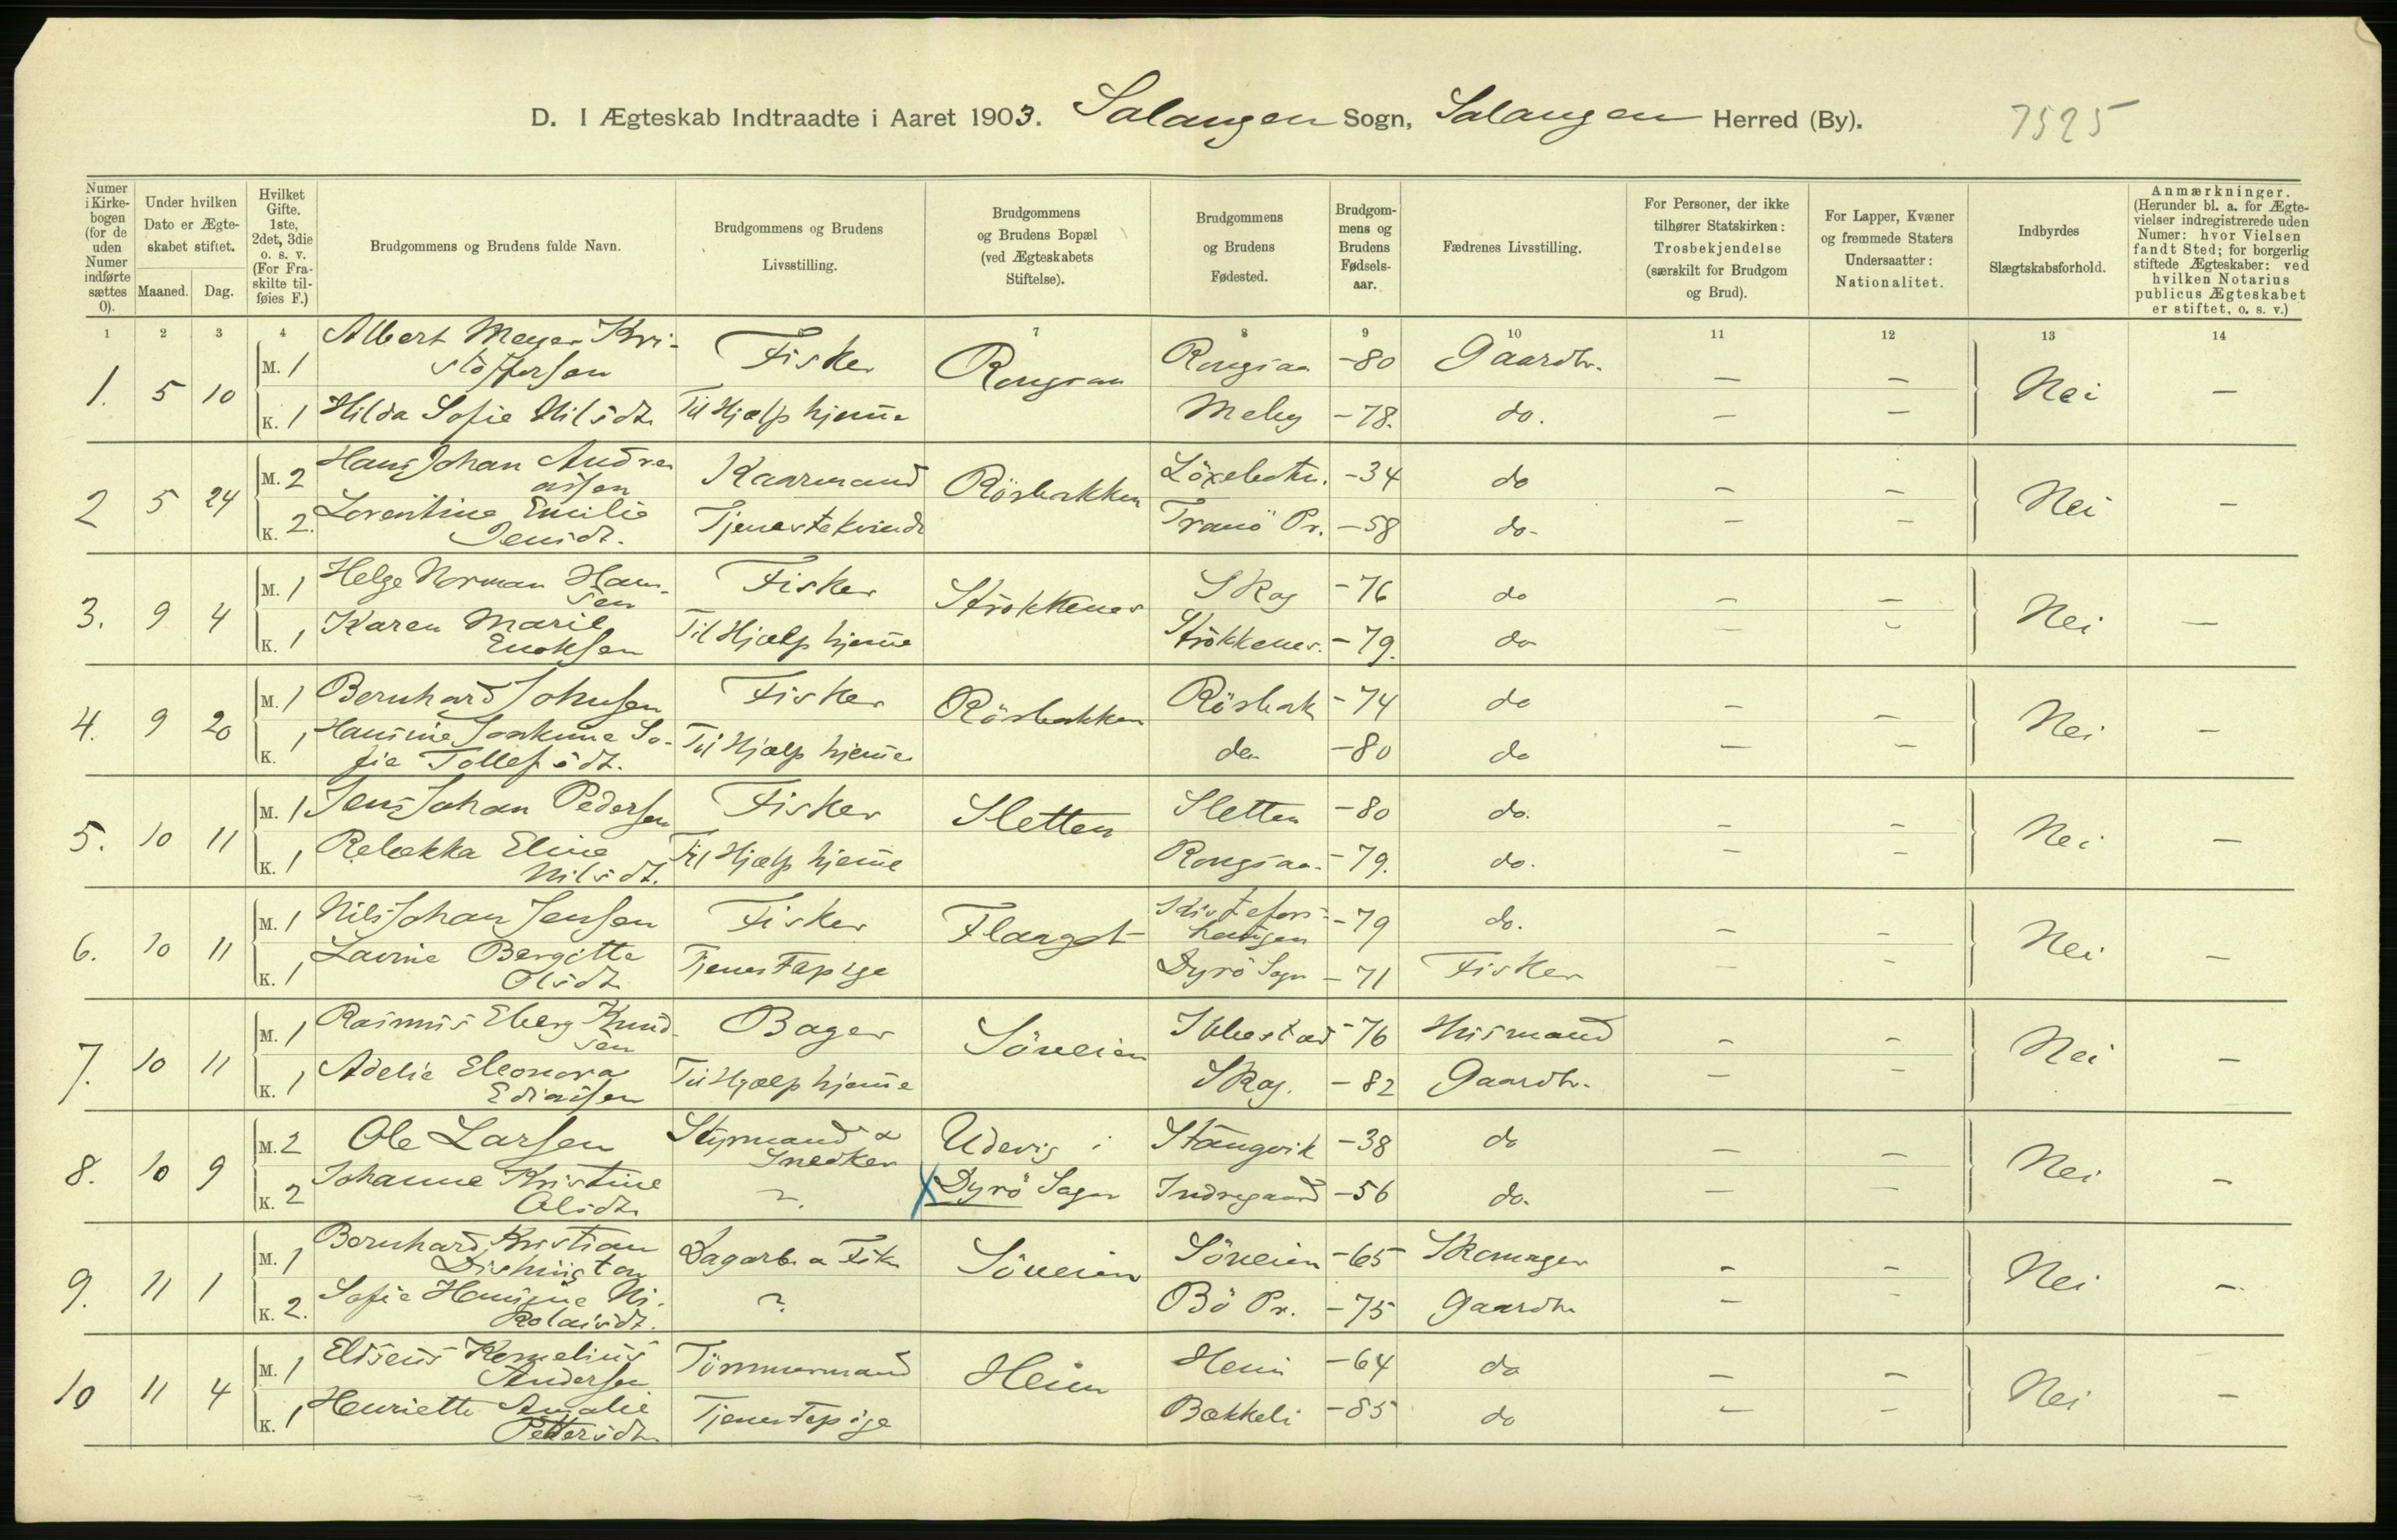 D. I Ægteskab Indtraadte i Aaret 1903. Salangen Sogn, Salangen Herred (By). 7525
Numer i Kirkebogen (for de uden Numer indførte sættes 0).
Under hvilken Dato er Ægteskabet stiftet.
Maaned. Dag.
Hvilket Gifte. 1ste, 2det, 3die o. s. v. (For Fraskilte tilføies F.)
Brudgommens og Brudens fulde Navn.
Brudgommens og Brudens Livsstilling.
Brudgommens og Brudens Bopæl (ved Ægteskabets Stiftelse).
Brudgommens og Brudens Fødested.
Brudgommens og Brudens Fødselsaar.
Fædrenes Livsstilling.
For Personer, der ikke tilhører Statskirken: Trosbekjendelse (særskilt for Brudgom og Brud).
For Lapper, Kvæner og fremmede Staters Undersaatter: Nationalitet.
Indbyrdes Slægtskabsforhold.
Anmærkninger. (Herunder bl. a. for Ægtevielser indregistrerede uden Numer: hvor Vielsen fandt Sted; for borgerlig stiftede Ægteskaber: ved hvilken Notarius publicus Ægteskabet er stiftet, o. s. v.)
1 2 3 4 6 7 8 9 10 11 12 13 14
1. 5 10 M. 1 Albert Meyer Kristoffersen Fisker Rongsaa Rongsaa -80 Gaardbr. — — Nei —
K. 1 Hilda Sofie Nilsdt. Til Hjælp hjeme Meby -78. do. — —
2 5 24 M. 2 Hans Johan Andreassen Kaarmand Rösbakken Löxebotn. -34 do — — Nei —
K. 2. Lorentine Emilie Jensdt. Tjenestekvinde Tranö Pr. -58 do- — —
3. 9 4 M. 1 Helge Norman Hansen Fisker Strokkenes Skog -76 do — — Nei —
K. 1 Karen Marie Enoksen Til Hjælp hjeme Strokkenes. -79. do — —
4. 9 20 M. 1 Bernhard Johnsen Fisker Rösbakken Rösbak -74 do — — Nei —
K. 1 Hansine Joakime Sofie Tollefsdt. Til Hjælp hjeme do -80 do — —
5. 10 11 M. 1 Jens Johan Pedersen Fisker Sletten Sletten -80 do. — — Nei —
K. 1 Rebekka Eline Nilsdt. Til Hjælp hjeme Rongsaa. -79. do. — —
6. 10 11 M. 1 Nils Johan Jensen Fisker Flaaget -79 do. — — Nei —
K. 1 Lavine Bergitte Olsdt. Tjenestepige Dyrö Sogn -71 Fisker — —
7. 10 11 M. 1 Rasmus Eberg Knudsen Bager Söveien Ibbestad -76 Husmand — — Nei —
K. 1 Adelie Eleonora Ediassen Til Hjælp hjeme Skog. -82 Gaardbr. — —
8. 10 9 M. 2 Ole Larsen Styrmand & Snedker Udevig i Stangvik -38 do — — Nei —
K. 2 Johanne Kristine Olsdt. ? X Dyrö Sogn Indregaard -56 do. — —
9. 11 1 M. 1 Bernhard Kristian Dishington Dagarb. & Fisk. Söveien Söveien -65 Skomager — — Nei —
K. 2. Sofie Hansine Nikolaisdt. ? Bö Pr. -75 Gaardbr. — —
10 11 4 M. 1 Eliseus Kornelius Andersen Tömmermand Heim Heim -64 do — — Nei —
K. 1 Henriette Amalie Pettersdt. Tjenestepige Bækkeli -85 do — —